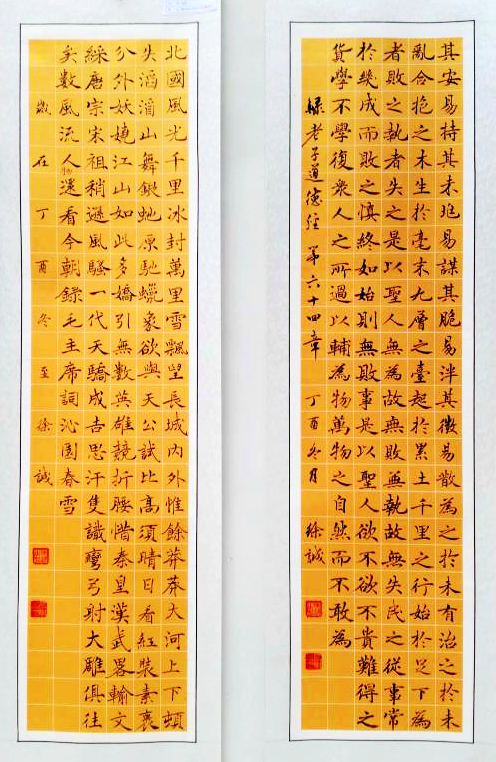 其安易持其未兆易謀其脆易泮其微易散為之於未有治之於未
亂合抱之木生於毫末九層之臺起於累土千里之行始於足下為
者敗之執者失之是以聖人無為故無敗無執故無失民之從事常
於幾成而敗之慎終如始則無敗事是以聖人欲不欲不貴難得之
貨學不學復衆人之所過以輔為物萬物之自然而不敢為
録老子道德經第六十四章 丁酉冬月 徐誠
北國風光千里冰封萬里雪飄望長城内外惟餘莽莽大河上下頓
失滔滔山舞銀蛇原馳蠟象欲與天公試比高須晴日看紅裝素裹
分外妖嬈江山如此多嬌引無數英雄競折腰惜秦皇漢武畧輸文
綵唐宗宋祖稍遜風騷一代天驕成吉思汗隻識彎弓射大雕俱往
矣數風流人物還看今朝錄毛主席詞沁園春雪
歲在丁酉冬至徐誠